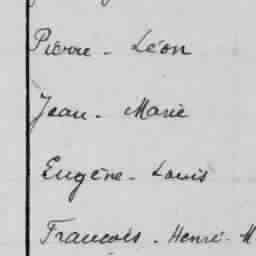 Pierre - Léon
Jean - Marie
Eugène - Louis
François - Henri - M